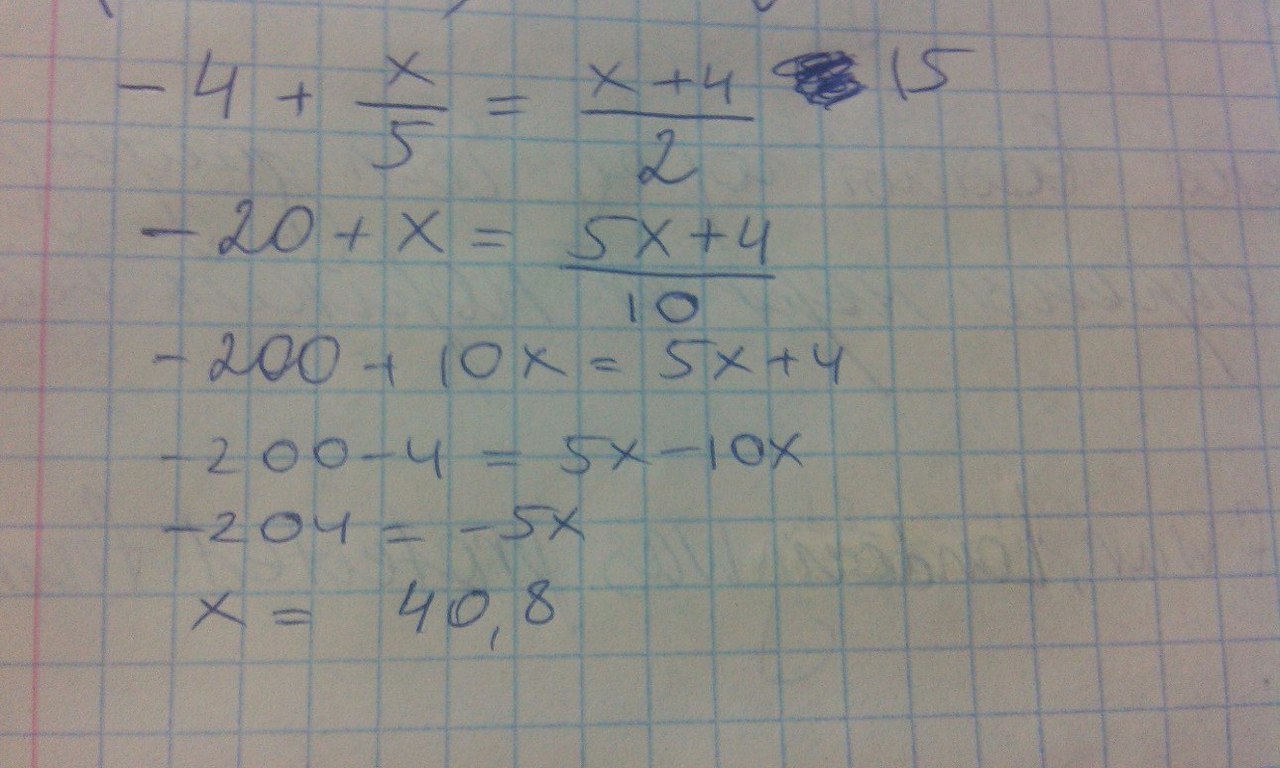 -4 + x/5 = (x+4)/2 | 5
-20 + x = (5x+4)/10
-200 + 10x = 5x+4
-200-4 = 5x-10x
-204 = -5x
x = 40,8